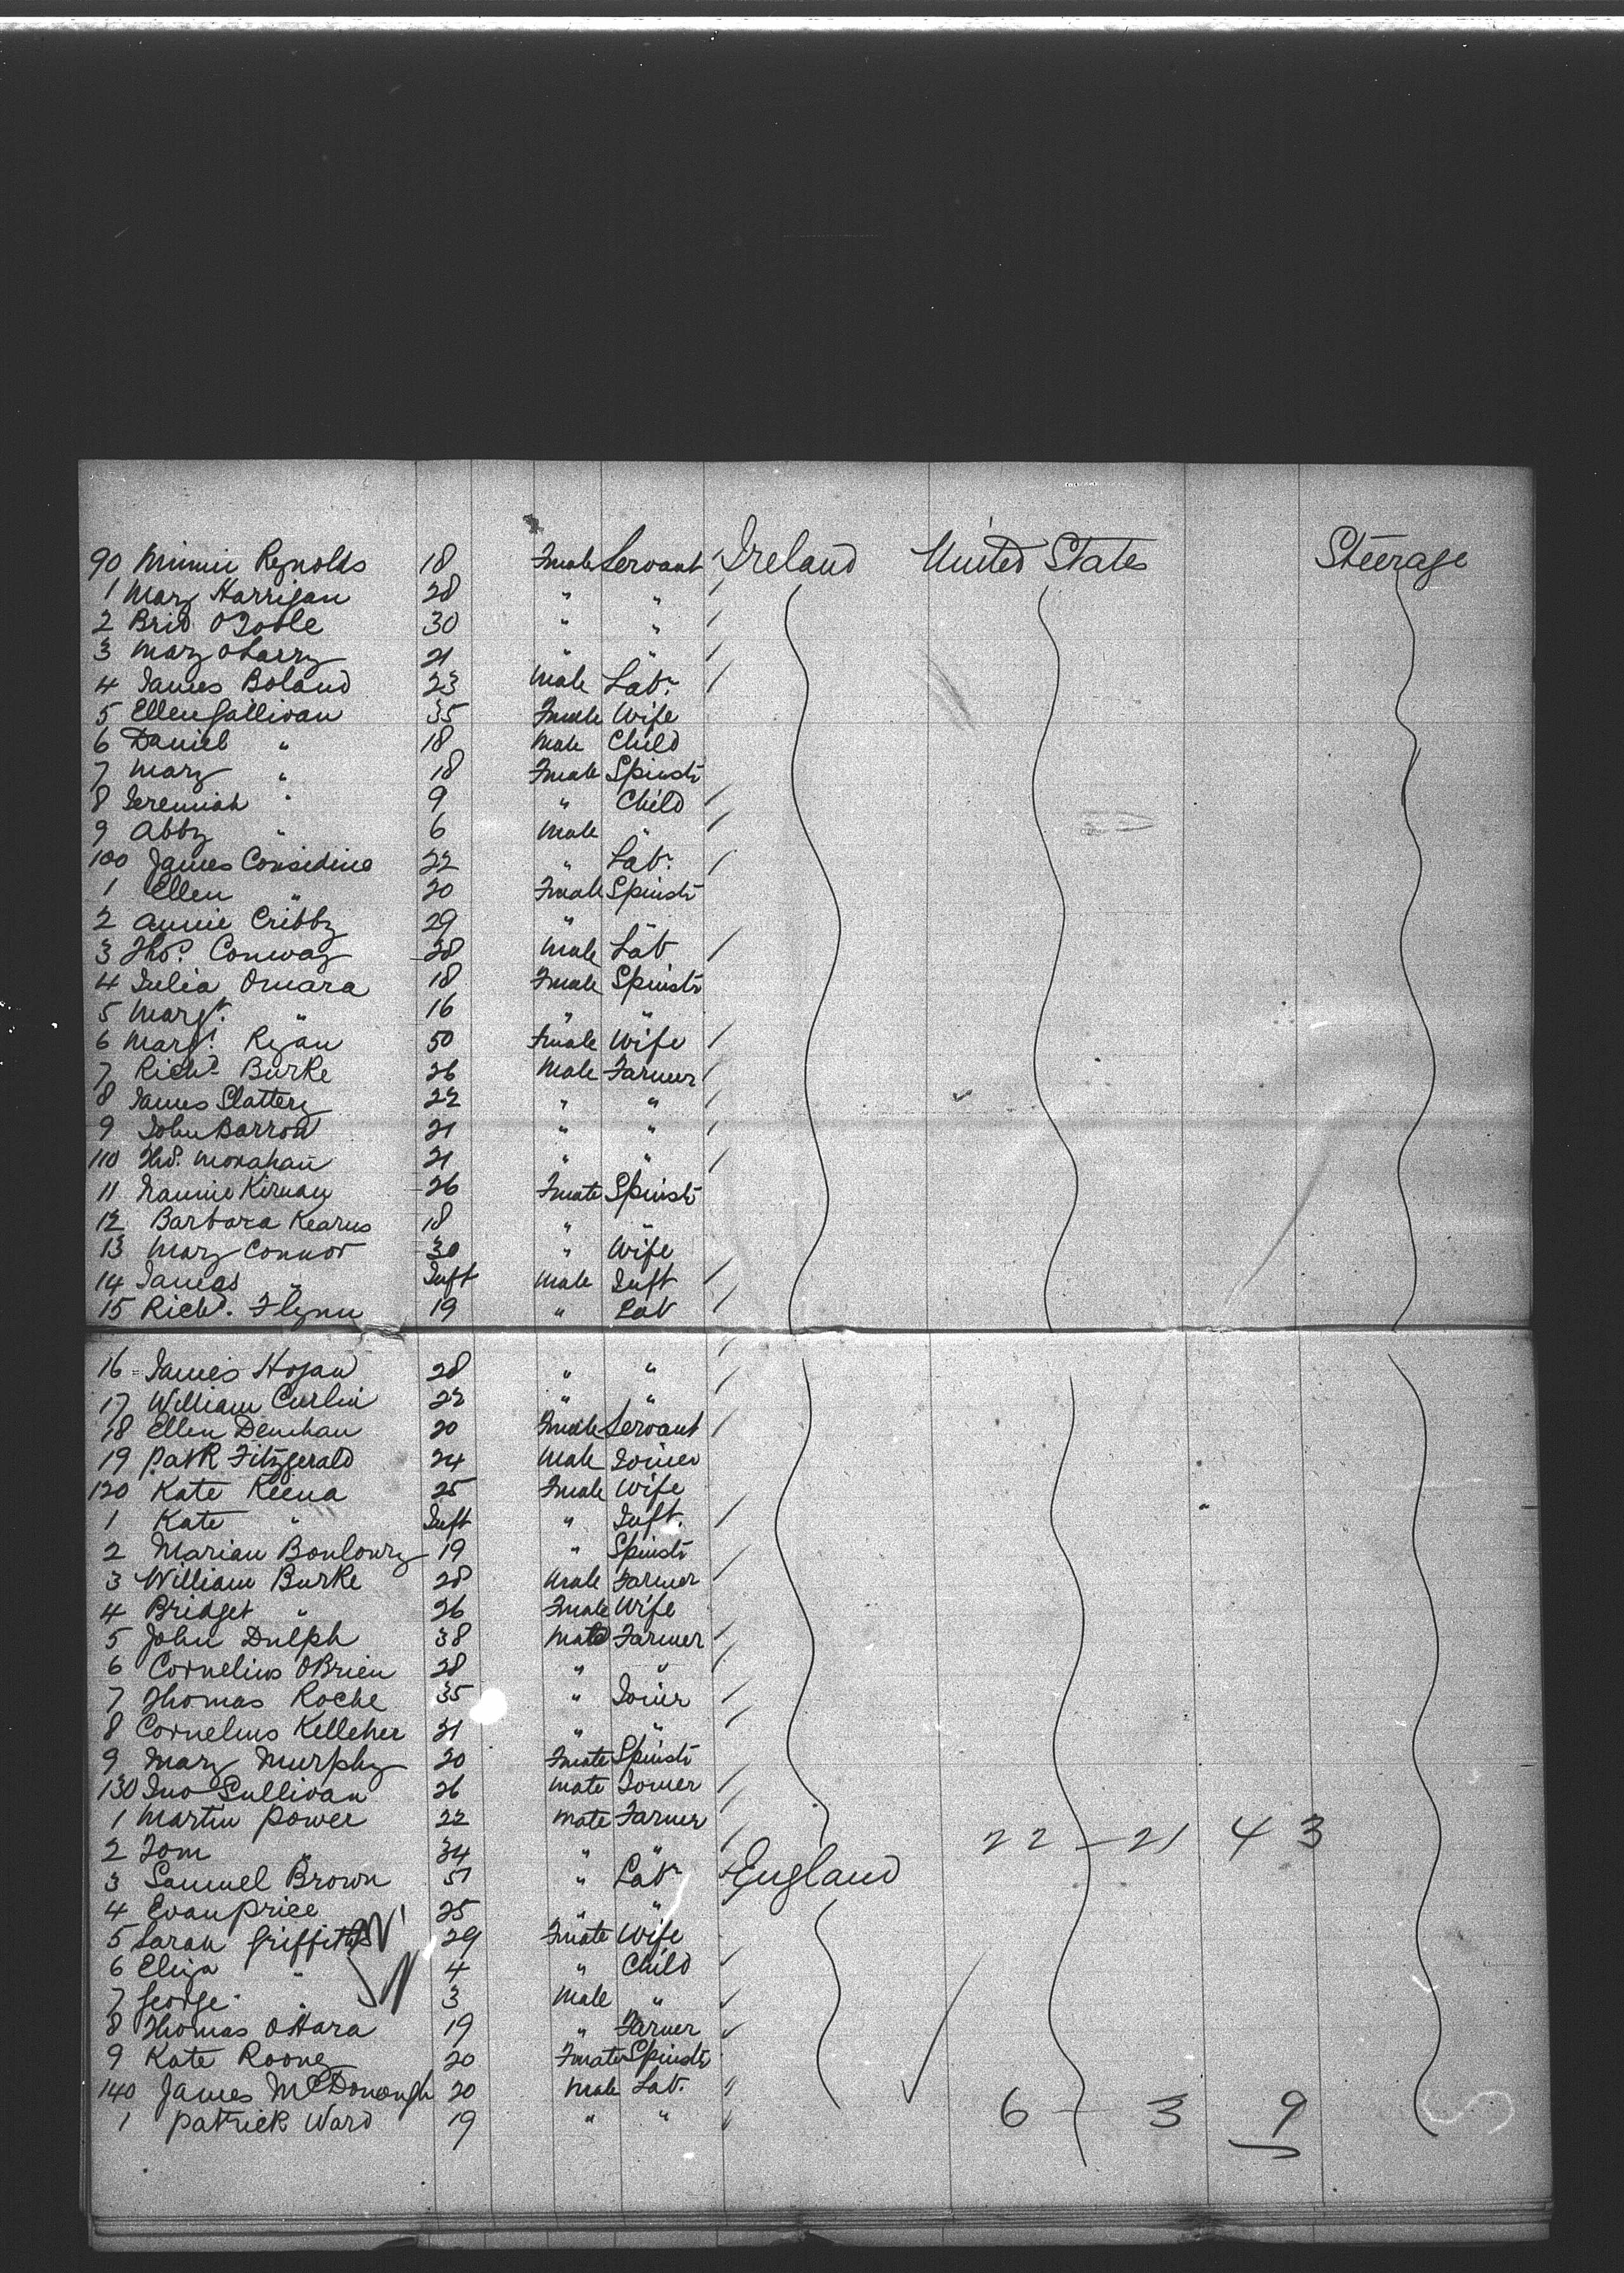 90 Minnie Reynolds 18 Fmale Servant Ireland United States Steerage
1 Mary Harrigan 28 " "
2 Brid OToole 30 " "
3 Mary OLarry 21 " "
4 James Boland 23 Male Labr
5 Ellen Gallivan 35 Fmale Wife
6 Daniel " 18 Male Child
7 Mary " 18 Fmale Spinstr
8 Jeremiah " 9 " Child
9 Abby " 6 Male "
100 James Considine 22 " Labr
1 Ellen " 20 Fmale Spinstr
2 Annie Cribby 29 " "
3 Thos. Conway 28 Male Lab
4 Julia Omara 18 Fmale Spinstr
5 Margt. " 16 " "
6 Margt. Ryan 50 Fmale Wife
7 Richd. Burke 26 Male Farmer
8 James Slattery 22 " "
9 John Barron 21 " "
110 Tho. Monahan 21 " "
11 Fannie Kirnan 26 Fmale Spinstr
12 Barbara Kearns 18 " "
13 Mary Connor 30 " Wife
14 James " Inft Male Inft
15 Richd. Flynn 19 " Lab
16 James Hogan 28 " "
17 William Curlin 22 " "
18 Ellen Denehan 20 Fmale Servant
19 Patk Fitzgerald 24 Male Joiner
120 Kate Keena 25 Fmale Wife
1 Kate " Inft " Inft.
2 Marian 19 " Spinstr
3 William Burke 28 Male Farmer
4 Bridget " 26 Fmale Wife
5 John Dulph 38 Male Farmer
6 Cornelius OBrien 28 " "
7 Thomas Roche 35 " Joiner
8 Cornelius Kelleher 21 " "
9 Mary Murphy 20 Fmale Spinstr
130 Jno Sullivan 26 Male Joiner
1 Martin Power 22 Male Farmer
2 Tom " 34 " " 22 - 21 43
3 Samuel Brown 51 " Labr England
4 Evan Price 25 " "
5 Sarah Griffiths 29 Fmale Wife
6 Eliza " 4 " Child
7 George " 3 Male "
8 Thomas OHara 19 " Farmer
9 Kate Rooney 20 Fmale Spinstr
140 James McDonough 20 Male Lab. 6 - 3 9
1 Patrick Ward 19 " "